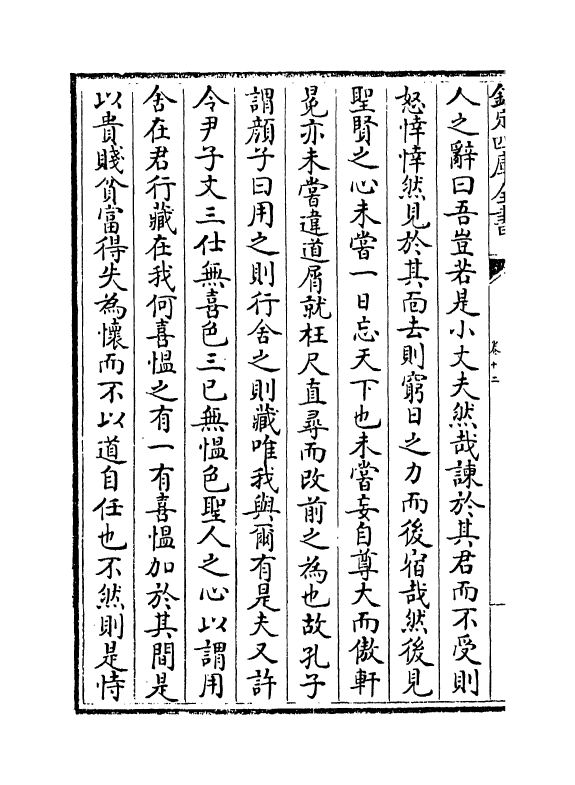 欽定四庫全書
卷十二
人之辭曰吾豈若是小丈夫然哉諫於其君而不受則
怒悻悻然見於其面去則窮日之力而後宿哉然後見
聖賢之心未嘗一日忘天下也未嘗妄自尊大而傲軒
冕亦未嘗違道屑就枉尺直尋而改前之為也故孔子
謂顔子曰用之則行舍之則藏唯我與爾有是夫又許
令尹子文三仕無喜色三已無愠色聖人之心以謂用
舍在君行藏在我何喜愠之有一有喜愠加於其間是
以貴賤貧富得失為懷而不以道自任也不然則是恃